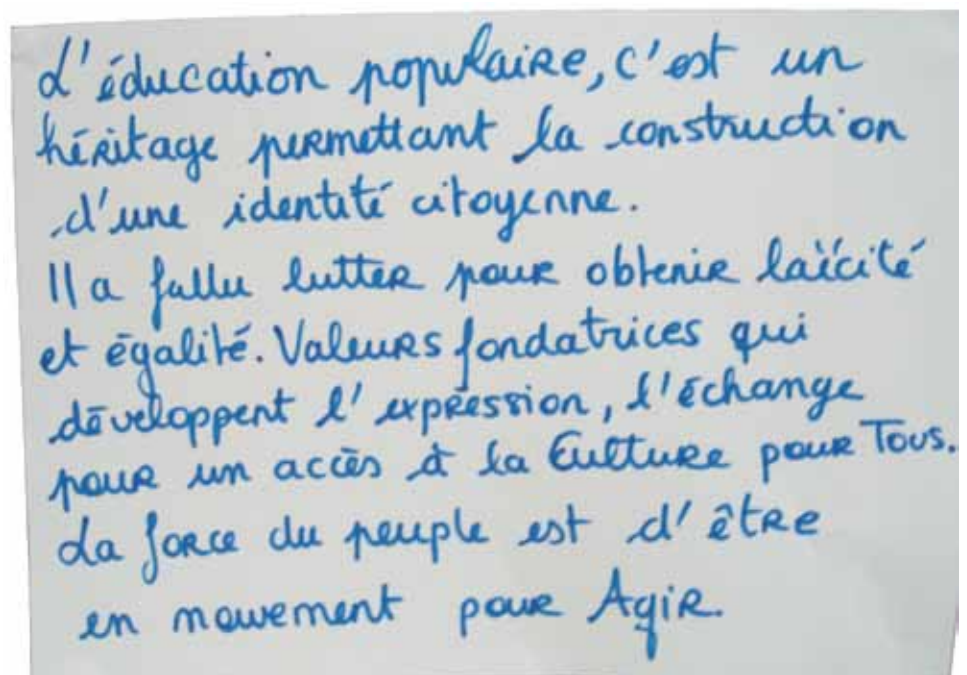 L'éducation populaire, c'est un
héritage permettant la construction
d'une identité citoyenne.
Il a fallu lutter pour obtenir laïcité
et égalité. Valeurs fondatrices qui
développent l'expression, l'échange
pour un accès à la Culture pour Tous.
La force du peuple est d'être
en mouvement pour Agir.